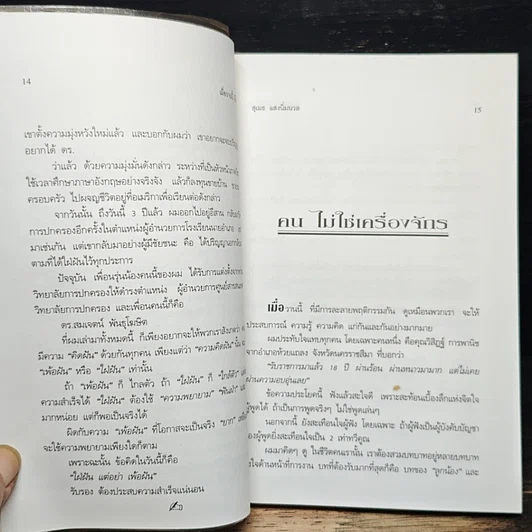 14
เขาตั้งความมุ่งหวังใหม่แล้ว และบอกกับผมว่า
อยากได้ ดร.
ว่าแล้ว ด้วยความมุ่งมั่นดังกล่าว ระหว่างที่เป็น
ใช้เวลาศึกษาภาษาอังกฤษอย่างจริงจัง แล้วก็ลงทุนขายบ้าน
ครอบครัว ไปผจญชีวิตอยู่ที่อเมริกาเพื่อเรียนต่อดังกล่าว
จากวันนั้น ถึงวันนี้ 3 ปีแล้ว ผมออกไปอยู่อีสาน
การปกครองอีกครั้งในตำแหน่งผู้อำนวยการโรงเรียนนายอำเภอ
มาเช่นกัน แต่เขากลับมาอย่างผู้มีชัยชนะ คือ ได้ปริญญาเอก
ตามที่ได้ใฝ่ฝันไว้ทุกประการ
ปัจจุบัน เพื่อนรุ่นน้องคนนี้ของผม ได้รับการแต่งตั้งจาก
วิทยาลัยการปกครองให้ดำรงตำแหน่ง ผู้อำนวยการศูนย์
วิทยาลัยการปกครอง และเพื่อนคนนี้ก็คือ
ดร.สมเจตน์ พันธุโฆษิต
ที่ผมเล่ามาทั้งหมดนี้ ก็เพียงอยากจะให้พวกเรา
มีความ "คิดฝัน" ด้วยกันทุกคน เพียงแต่ว่า "ความคิดฝัน" นั้น
"เพ้อฝัน" หรือ "ใฝ่ฝัน" เท่านั้น
ถ้า "เพ้อฝัน" ก็ ไกลตัว ถ้า "ใฝ่ฝัน" ก็ "ใกล้ตัว"
ความสำเร็จได้ "ใฝ่ฝัน" ต้องใช้ "ความพยายาม"
มากหน่อย แต่ก็พอเป็นจริงได้
ผิดกับความ "เพ้อฝัน" ที่โอกาสจะเป็นจริง "ยาก"
จะใช้ความพยายามเพียงใดก็ตาม
เพราะฉะนั้น ข้อคิดในวันนี้ก็คือ
"ใฝ่ฝัน แต่อย่า เพ้อฝัน"
รับรอง ต้องประสบความสำเร็จแน่นอน
สุเมธ แสงนิ่มนวล 15
คน ไม่ใช่เครื่องจักร
เมื่อวานนี้ ที่มีการละลายพฤติกรรมกัน ดูเหมือนพวกเรา จะให้
ประสบการณ์ ความรู้ ความคิด แก่กันและกันอย่างมากมาย
ผมประทับใจแทบทุกคน โดยเฉพาะคนหนึ่ง คือคุณวิสิฏฐ์ การพานิช
จากอำเภอห้วยแถลง จังหวัดนครราชสีมา ที่บอกว่า
"รับราชการมาแล้ว 18 ปี ผ่านร้อน ผ่านหนาวมามาก แต่ไม่เคย
ผ่านความอบอุ่นเลย"
ข้อความประโยคนี้ ฟังแล้วสะใจดี เพราะสะท้อนเบื้องลึกแห่งจิตใจ
ผู้พูดได้ ถ้าเป็นการพูดจริงๆ ไม่ใช่พูดเล่นๆ
นอกจากนี้ ยังสะเทือนใจผู้ฟัง โดยเฉพาะ ถ้าผู้ฟังเป็นผู้บังคับบัญชา
ของผู้พูดก็ยิ่งสะเทือนใจเป็น 2 เท่าทวีคูณ
ผมมาคิดๆ ดู ในชีวิตคนเรานั้น เราต้องสวมบทบาทอยู่หลายบทบาท
ด้านหน้าที่การงาน บทที่ต้องรับมากที่สุดก็คือ บทของ "ลูกน้อง" และ